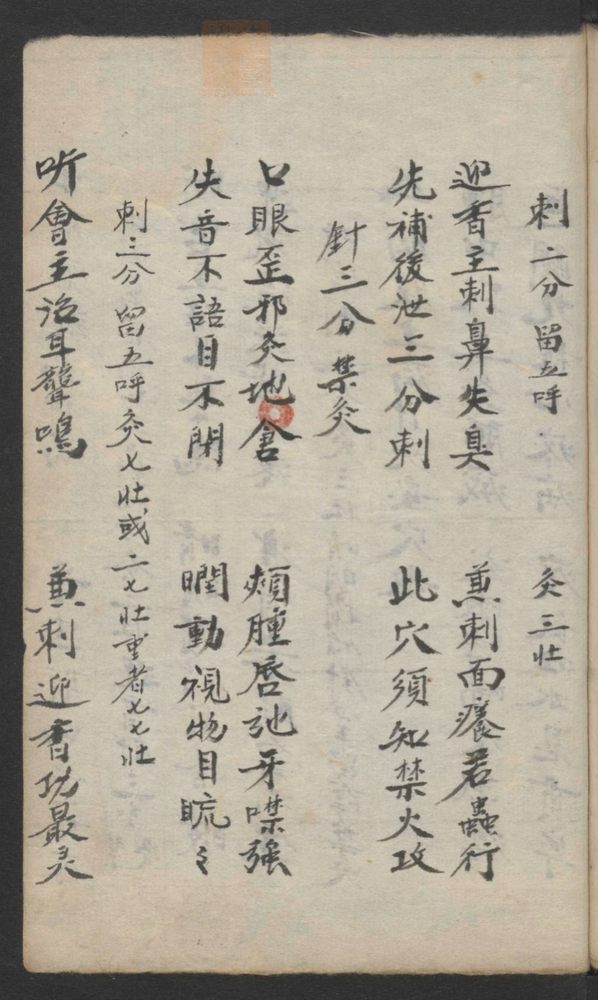 刺二分 留五呼 灸三壯
迎香主刺鼻失臭 兼刺面癢若蟲行
先補後泄三分刺 此穴須知禁火攻
針三分 禁灸
口眼歪邪灸地倉 頰腫唇訑牙噤強
失音不語目不閉 瞤動視物目䀮々
刺三分 留五呼 灸七壯或二七壯重者七七壯
听會主治耳聾鳴 兼刺迎香功最灵